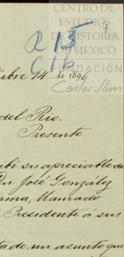 CENTRO DE
ESTUDIOS
DE HISTORIA
DE MEXICO
FUNDACIÓN
Carlos Slim
R 15
C 16
bre 14 de 1896
del Rio.
Presente
ebí su apreciable de
Dn José González
Presidente a sus
de un asunto que